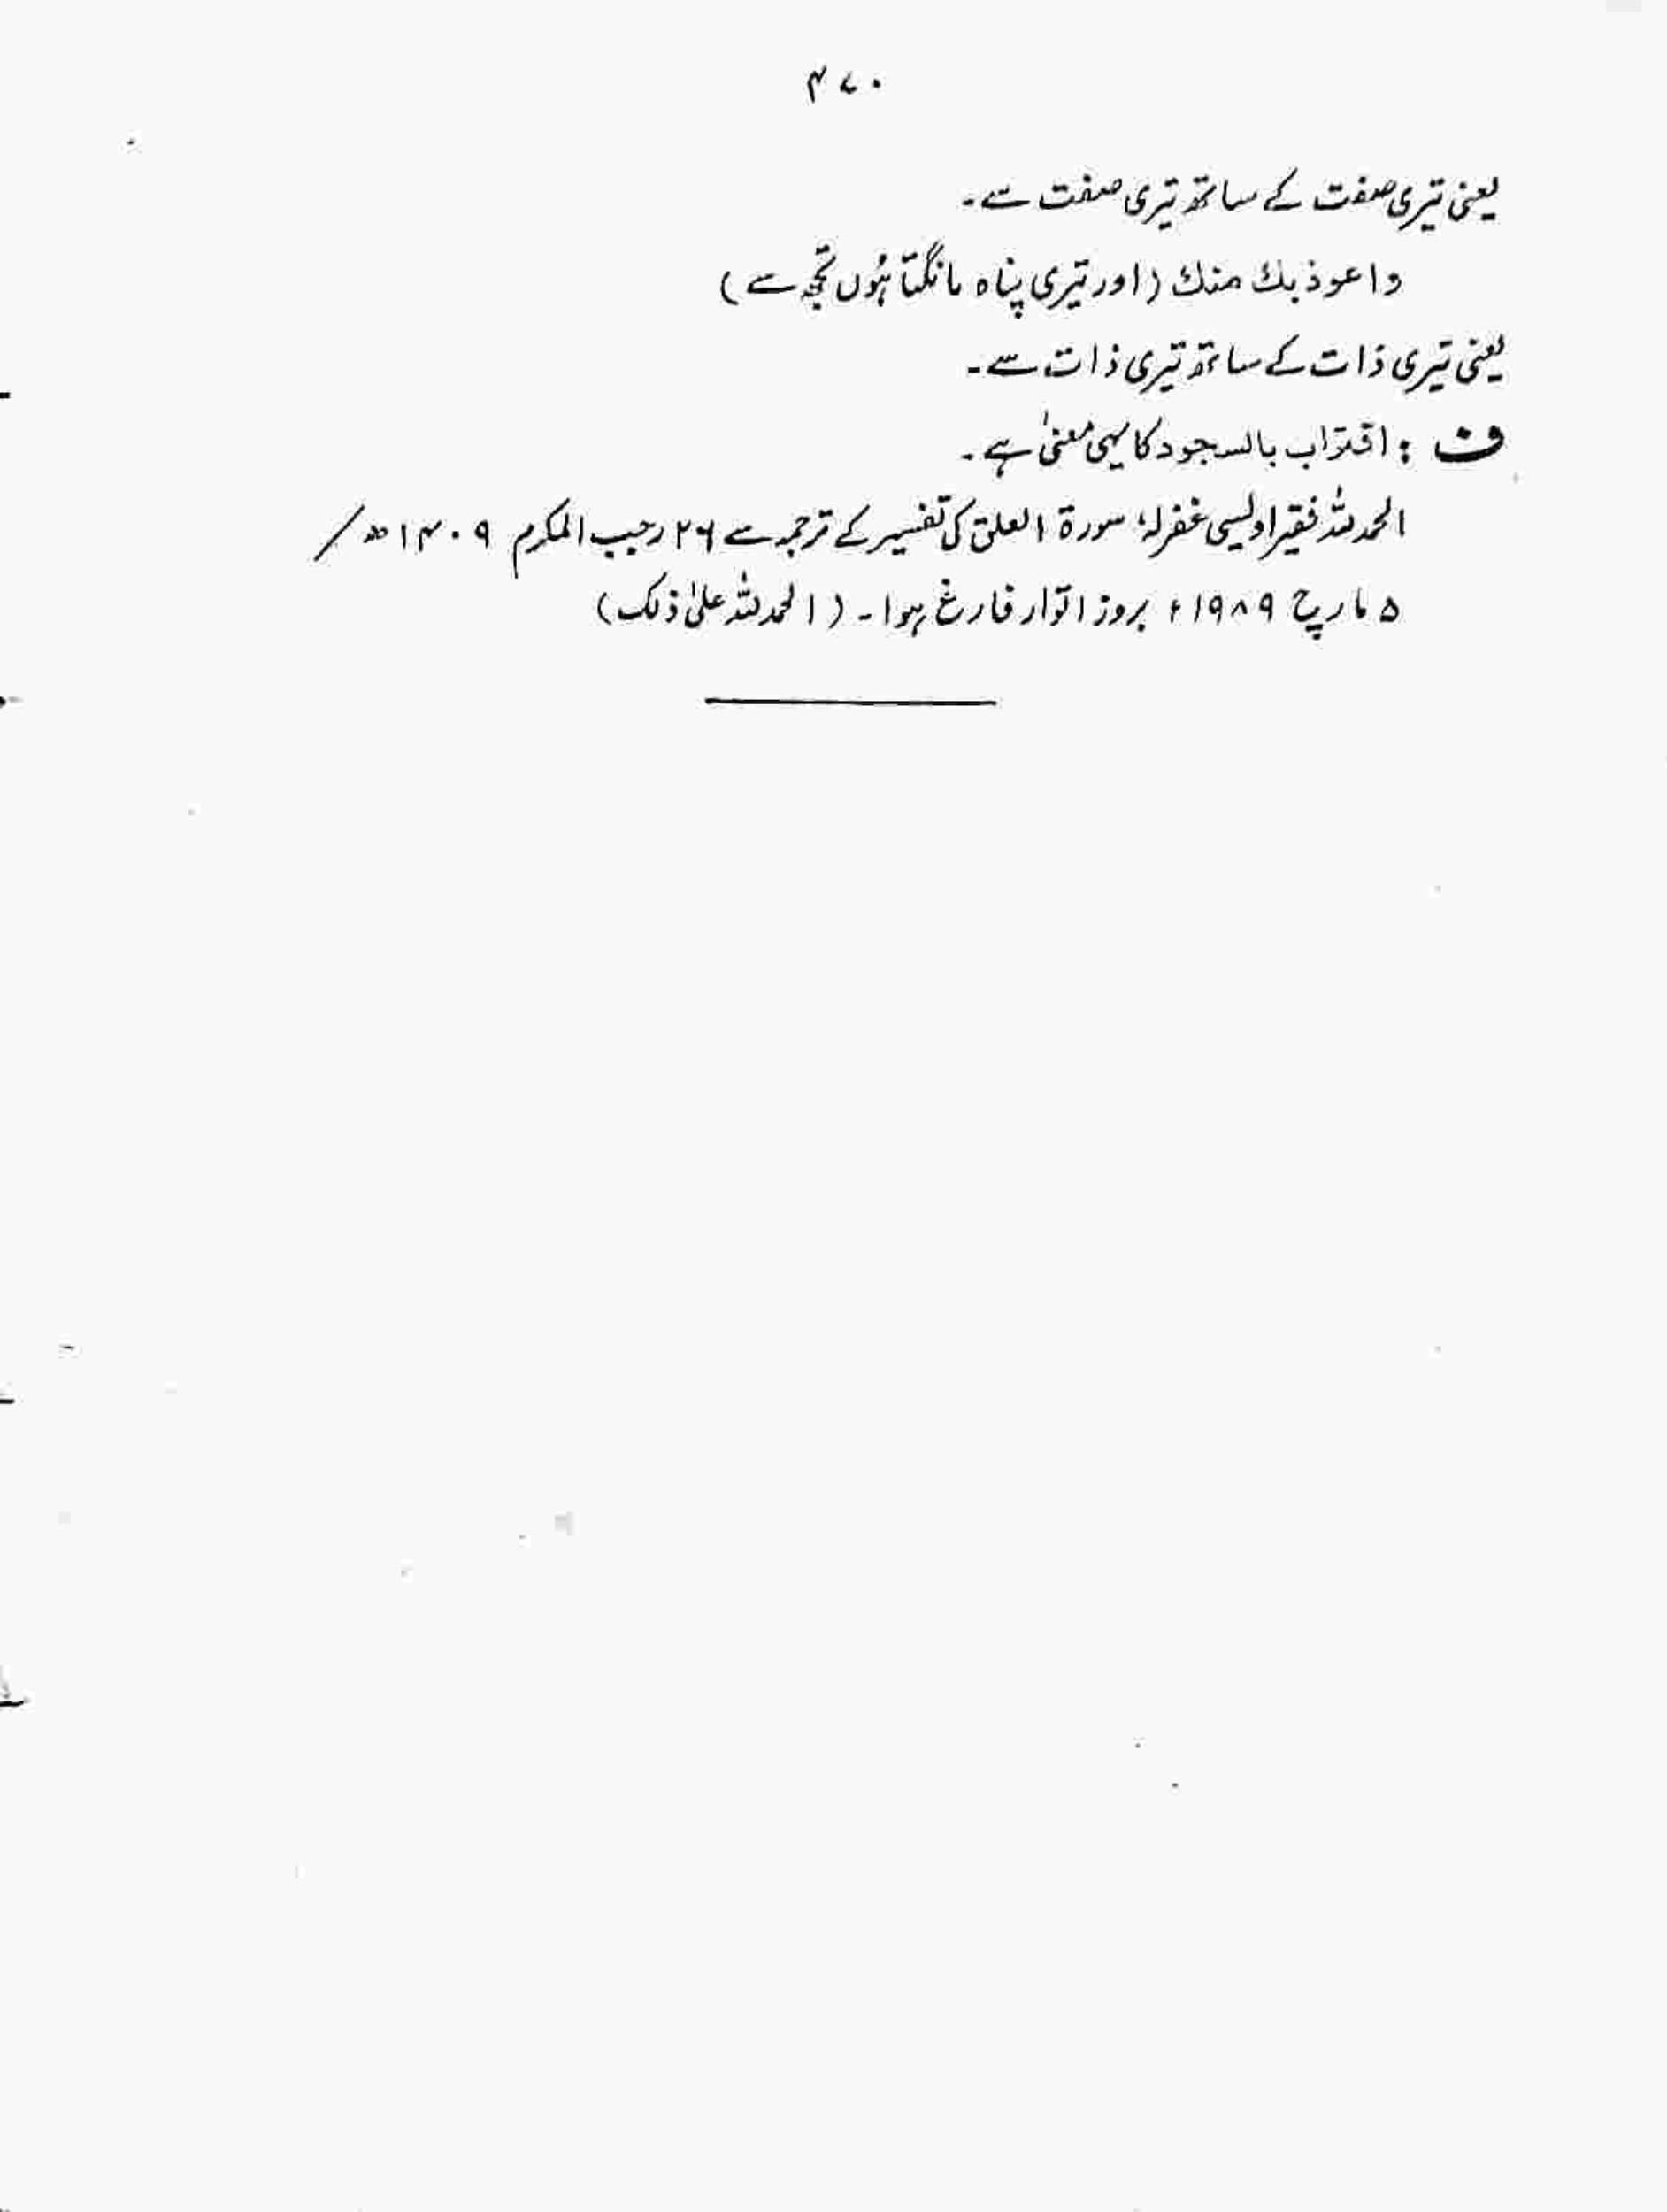 ۴۷۰
یعنی تیری صفت کے ساتھ تیری صفت سے۔
واعوذ بك منك (اور تیری پناہ مانگتا ہُوں تجھ سے)
یعنی تیری ذات کے ساتھ تیری ذات سے۔
ف : اقتراب بالسجود کا یہی معنیٰ ہے۔
الحمد للہ فقیر اویسی غفرلہٗ سورۃ العلق کی تفسیر کے ترجمہ سے ۲۶ رجب المکرم ۱۴۰۹ھ/
۵ مارچ ۱۹۸۹ء بروز اتوار فارغ ہوا۔ (الحمد للہ علیٰ ذلک)